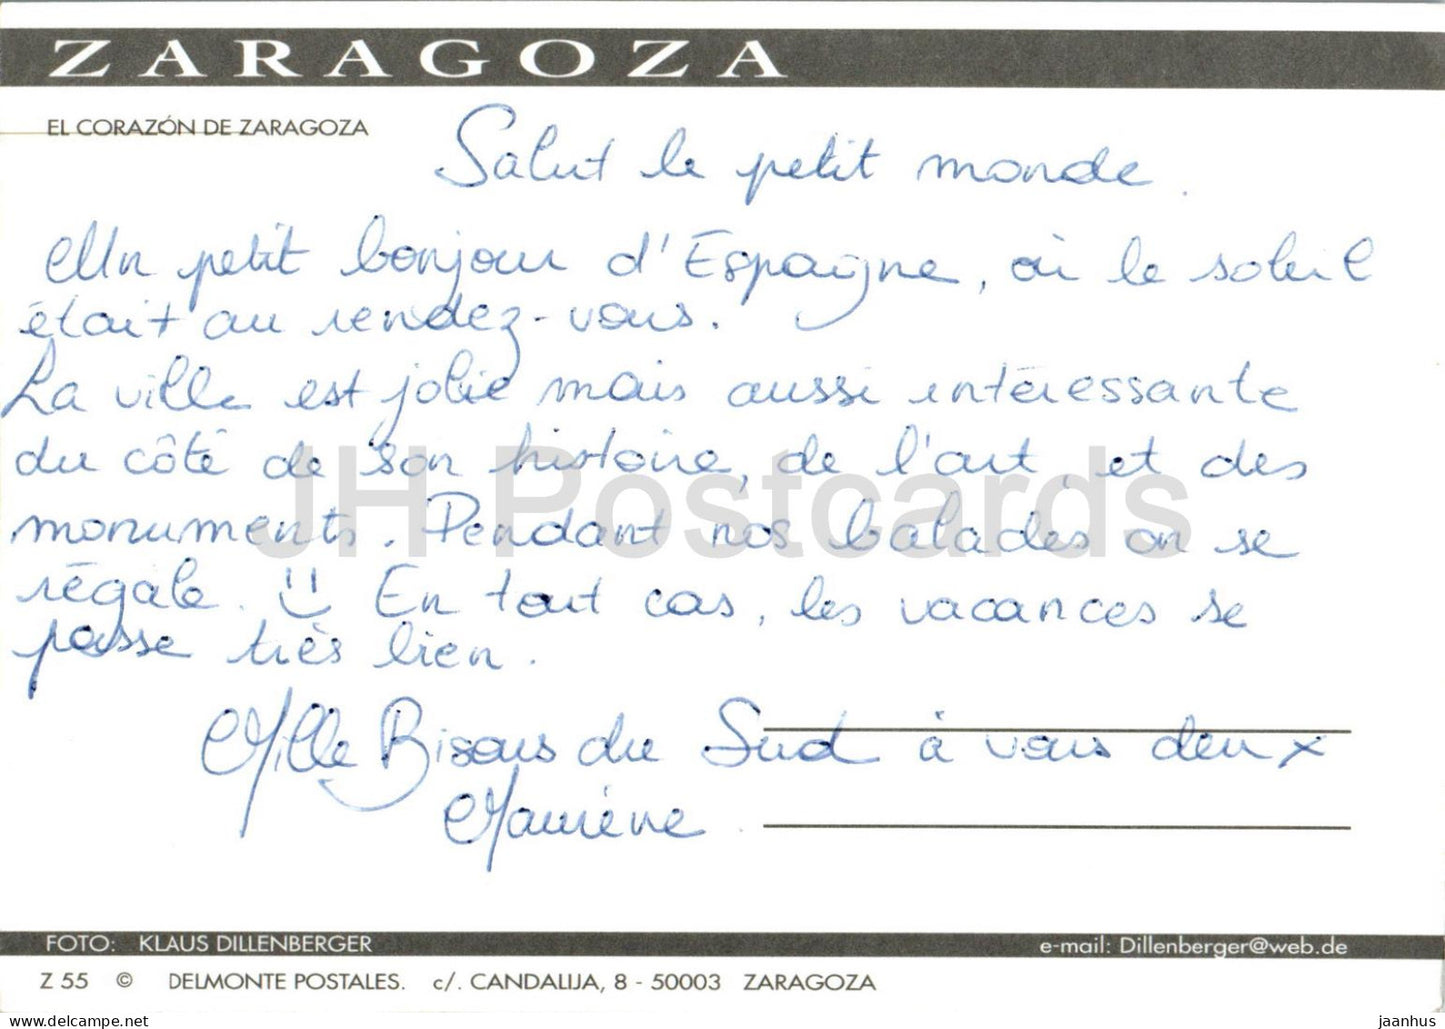 ZARAGOZA
EL CORAZÓN DE ZARAGOZA
Salut le petit monde.
Un petit bonjour d'Espagne, où le soleil
était au rendez-vous.
La ville est jolie mais aussi intéressante
du côté de son histoire, de l'art, et des
monuments. Pendant nos balades on se
régale. En tout cas, les vacances se
passe très bien.
Mille Bisous du Sud à vous deux
JH Postcards
FOTO: KLAUS DILLENBERGER
e-mail: Dillenberger@web.de
Z 55 © DELMONTE POSTALES. c/. CANDALIJA, 8 - 50003 ZARAGOZA
www.delcampe.net
jaanhus